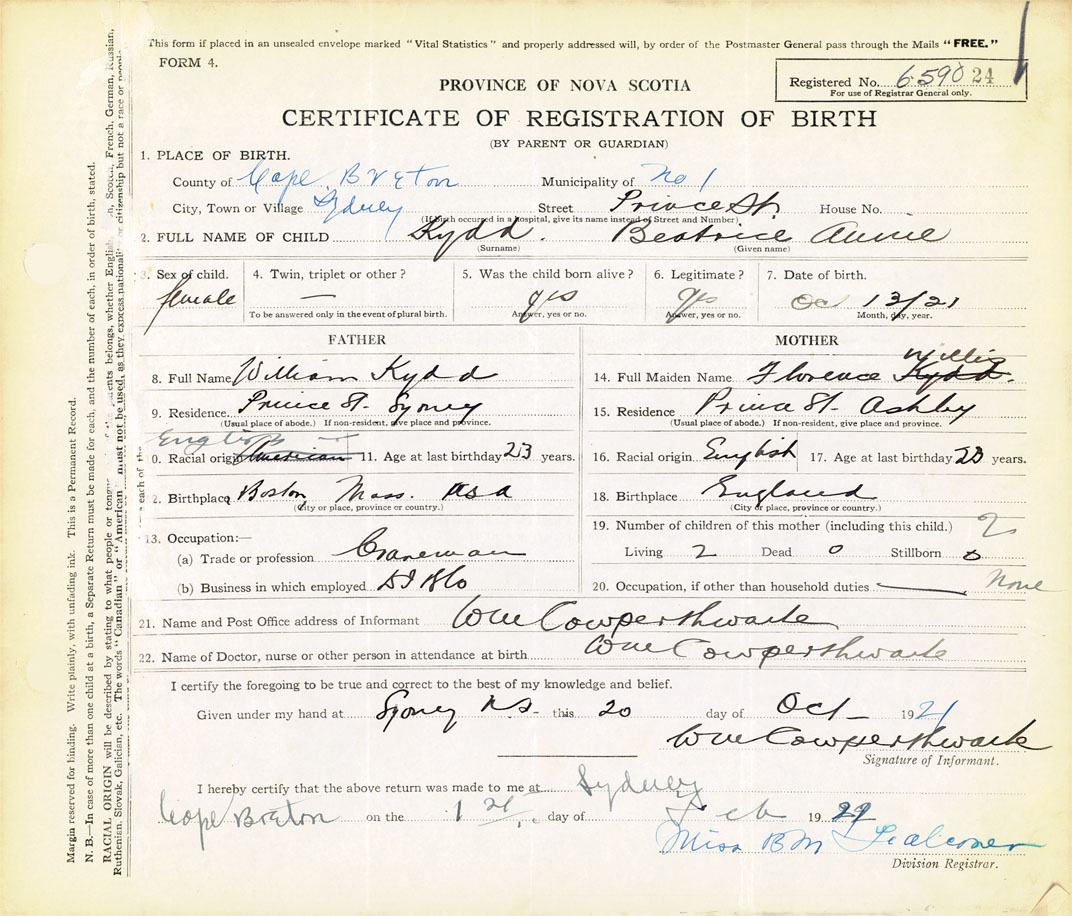 This form if placed in an unsealed envelope marked "Vital Statistics" and properly addressed will, by order of the Postmaster General pass through the Mails "FREE."
FORM 4.
Registered No. 6590 24
For use of Registrar General only.
PROVINCE OF NOVA SCOTIA
CERTIFICATE OF REGISTRATION OF BIRTH
(BY PARENT OR GUARDIAN)
1. PLACE OF BIRTH.
County of Cape Breton Municipality of No 1
City, Town or Village Sydney Street Prince St. House No.
(If birth occurred in a hospital, give its name instead of Street and Number)
2. FULL NAME OF CHILD Kydd. Beatrice Annie
(Surname) (Given name)
3. Sex of child. 4. Twin, triplet or other? 5. Was the child born alive? 6. Legitimate? 7. Date of birth.
female — yes yes Oct 13/21
To be answered only in the event of plural birth. Answer, yes or no. Answer, yes or no. Month, day, year.
FATHER
8. Full Name William Kydd
9. Residence. Prince St. Sydney
(Usual place of abode.) If non-resident, give place and province.
English
0. Racial origin American 11. Age at last birthday 23 years.
2. Birthplace Boston, Mass. USA
(City or place, province or country.)
13. Occupation:—
(a) Trade or profession Craneman
(b) Business in which employed
MOTHER
Willis
14. Full Maiden Name Florence Kydd.
15. Residence Prince St. Ashby
(Usual place of abode.) If non-resident, give place and province.
16. Racial origin English 17. Age at last birthday 23 years.
18. Birthplace England
(City or place, province or country.)
19. Number of children of this mother (including this child.) 2
Living 2 Dead 0 Stillborn 0
20. Occupation, if other than household duties None
21. Name and Post Office address of Informant Wm Cowperthwaite
22. Name of Doctor, nurse or other person in attendance at birth Wm Cowperthwaite
I certify the foregoing to be true and correct to the best of my knowledge and belief.
Given under my hand at Sydney N.S. this 20 day of Oct 1921
Wm Cowperthwaite
Signature of Informant.
I hereby certify that the above return was made to me at Sydney
Cape Breton on the 1st day of Feb 19
Miss B M Falconer
Division Registrar.
Margin reserved for binding. Write plainly, with unfading ink. This is a Permanent Record.
N. B.—In case of more than one child at a birth, a Separate Return must be made for each, and the number of each, in order of birth, stated.
RACIAL ORIGIN will be described by stating to what people or tongue of the parents belongs, whether English, Scotch, French, German, Russian,
Ruthenian, Slovak, Galician, etc. The words "Canadian" or "American" must not be used, as they express nationality or citizenship but not a race or people
each of the